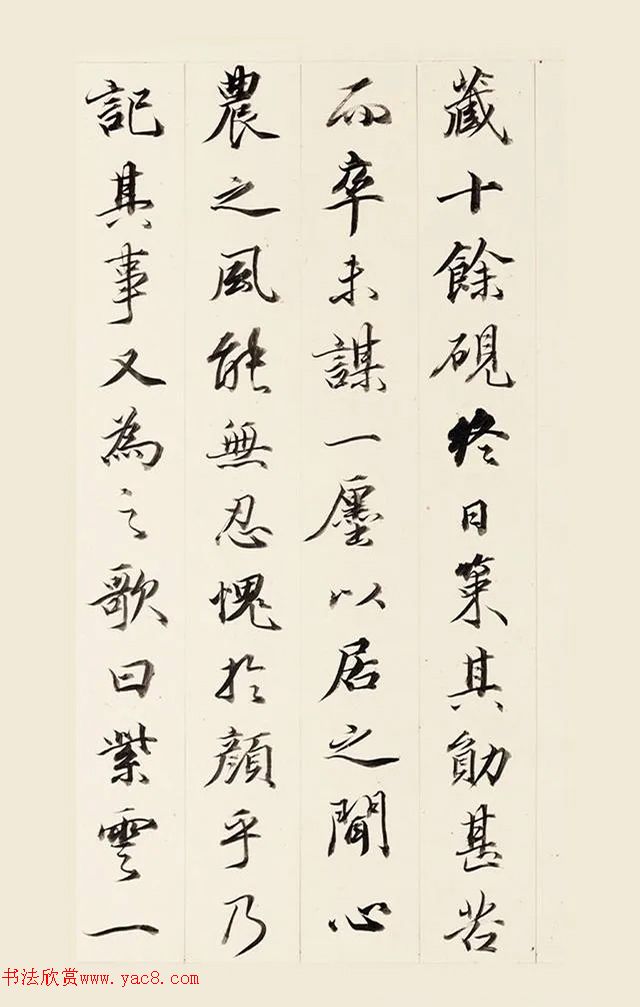 藏十餘硯終日策其勛甚苦
而卒未謀一廛以居之聞心
農之風能無忍愧於顏乎乃
記其事又為之歌曰紫雲一
书法欣赏www.yac8.com